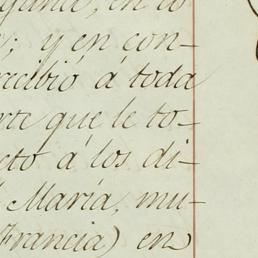 en co
; y en con-
recibió á toda
rte que le to-
cto á los di-
María, mu-
Francia) en